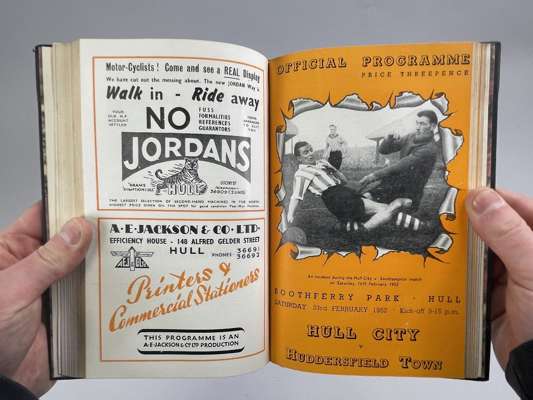 Motor-Cyclists! Come and see a REAL Display
We have cut out the messing about. The new JORDAN Way is
Walk in - Ride away
YOUR
OLD H.P.
ACCOUNT
SETTLED
NO
FUSS
FORMALITIES
REFERENCES
GUARANTORS
JORDANS
HULL
THE LARGEST SELECTION OF SECOND-HAND MACHINES IN THE NORTH
HIGHEST PRICE GIVEN ON THE SPOT for good condition Two-Way Motors
A·E·JACKSON & CO·LTD·
EFFICIENCY HOUSE - 148 ALFRED GELDER STREET
HULL
PHONES 36691
36692
Printers &
Commercial Stationers
THIS PROGRAMME IS AN
A·E·JACKSON & Co LTD PRODUCTION
OFFICIAL PROGRAMME
PRICE THREEPENCE
An incident during the Hull City v. Southampton match
on Saturday, 16th February, 1952
BOOTHFERRY PARK · HULL
SATURDAY 23rd FEBRUARY 1952 · Kick-off 3-15 p.m.
HULL CITY
v
HUDDERSFIELD TOWN